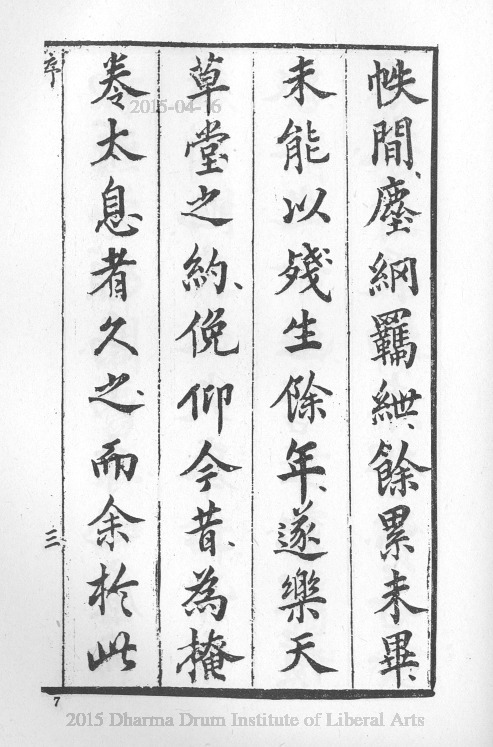 帙間、塵網羈紲、餘累未畢、
未能以殘生餘年、遂樂天
草堂之約、俛仰今昔、為掩
卷太息者久之、而余於此
序
三
7
2015-04-16
2015 Dharma Drum Institute of Liberal Arts